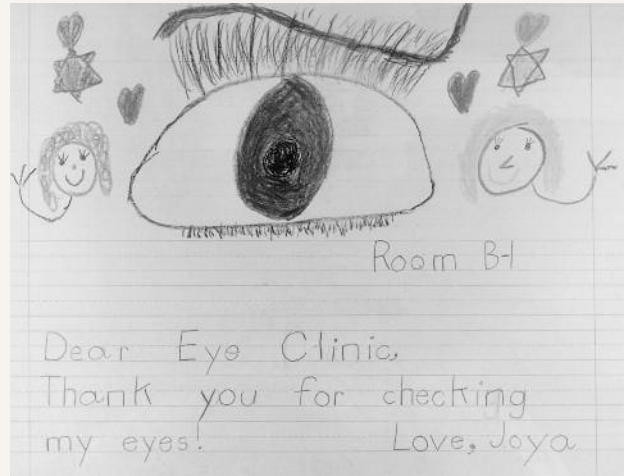 Room B-1
Dear Eye Clinic,
Thank you for checking
my eyes! Love, Joya